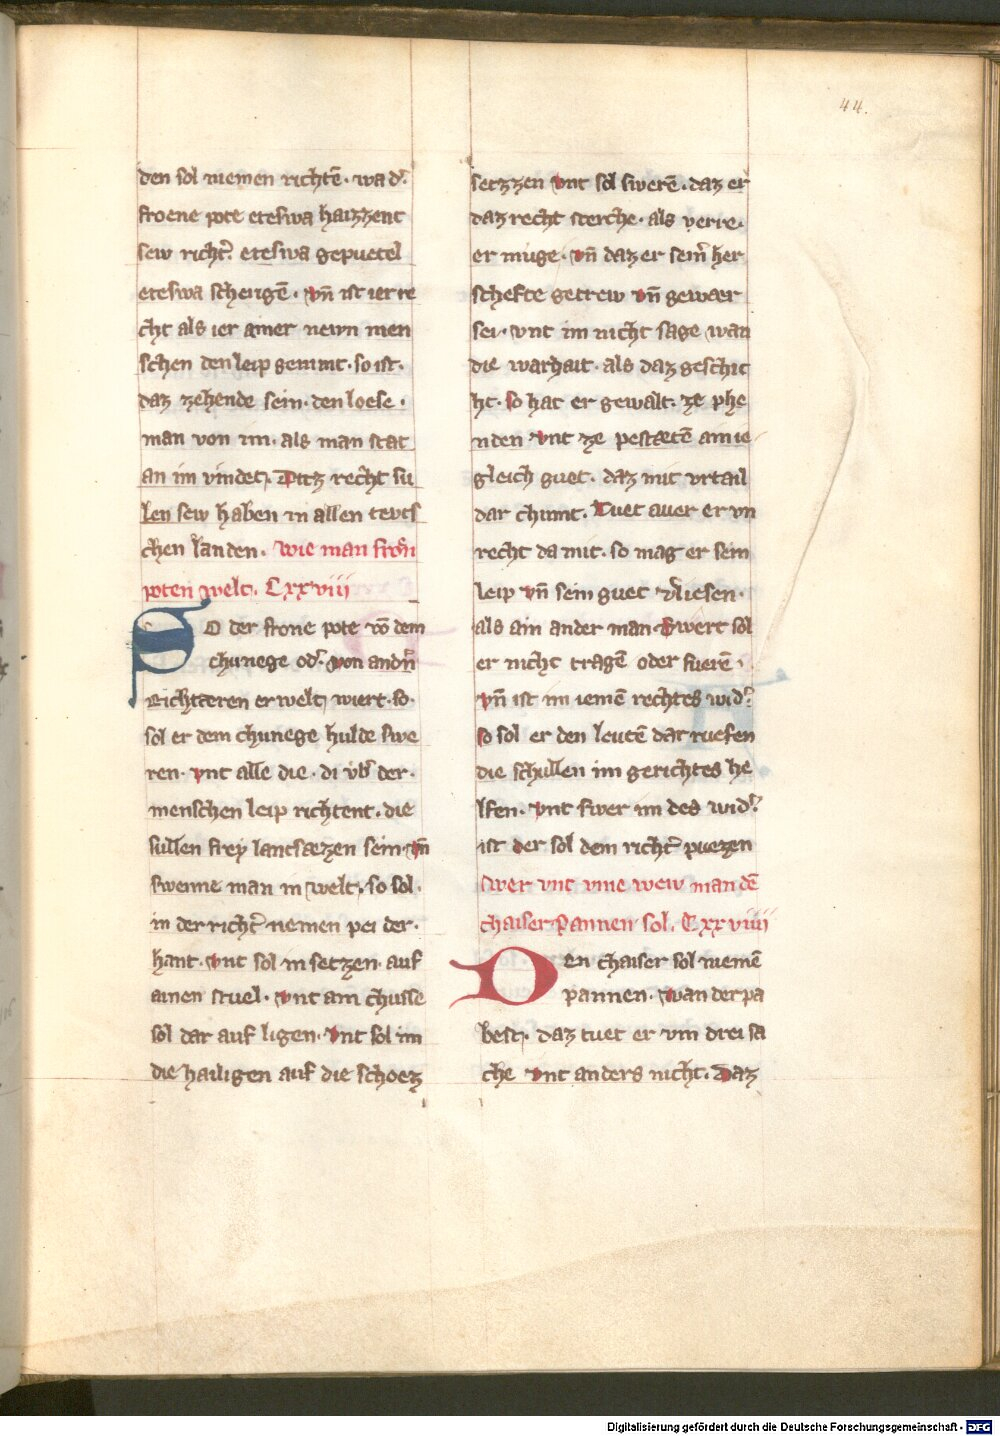 44.
den sol niemen richtē· wa d᷑
froene pote eteswa haizzent
sew richt᷑. eteswa gepuetel
eteswa schergē· vn̄ ist ier re
cht als ier ainer newn men
schen den leip genimt· so ist·
daz zehende sein· den loese·
man von im· als man stat
an im vindet. Ditz recht su
len sew haben in allen tevts
chen landen· wie man fron̄
poten welt. Cxxviii
SO der frone pote vō dem
chunege od᷑ von andn̄
Richtæren erwelt wiert· so·
sol er dem chunege hulde swe
ren· vnt alle die· di vb᷑ der·
menschen leip richtent· die
sullen frey lantsæzen sein· vn̄
swenne man in welt· so sol·
in der richt᷑ nemen pei der·
hant· vnt sol in setzen· auf
ainen stuel· vnt ain chusse
sol dar auf ligen· vnt sol im
die hailigen auf die schoez
setzzen vnt sol swerē· daz er
daz recht sterche· als verre·
er muge· vn̄ daz er sein᷑ her
schefte getrew vn̄ gewær
sei· vnt im nicht sage wan
die warhait· als daz geschic
ht· so hat er gewalt· ze phe
nden vnt ze pestætē ain ie
gleich guet· daz mit vrtail
dar chumt· Tuet auer er vn
recht da mit· so mag er sein
leip vn̄ sein guet v᷑liesen·
als ain ander man· Swert sol
er nicht tragē oder fuerē·
vn̄ ist im iemē rechtes wid᷑
so sol er den leutē dar ruefen
die schullen im gerichtes he
lfen· vnt swer im des wid᷑
ist der sol dem richt᷑ puezen
Swer vnt vme wew man dē
chaiser pannen sol. Cxxviiii
DEn chaiser sol niemē
pannen· wan der pa
best· daz tuet er vm drei sa
che vnt anders nicht· Daz
Digitalisierung gefördert durch die Deutsche Forschungsgemeinschaft - DFG